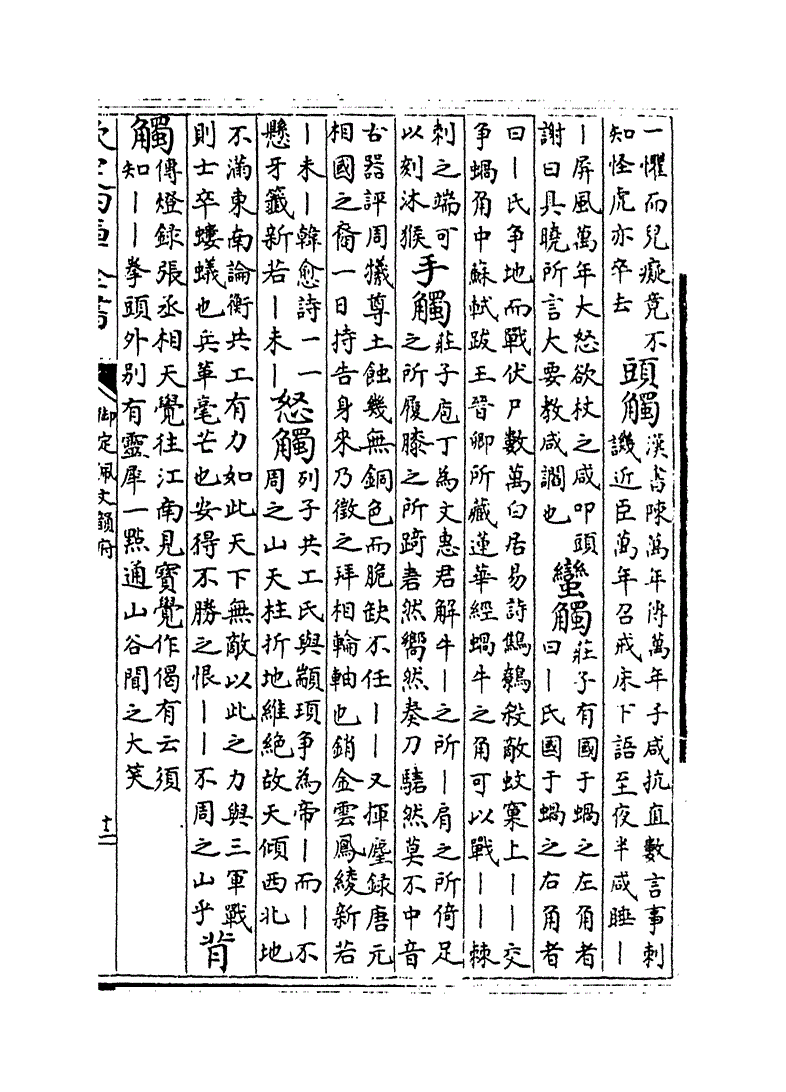 一懼而兒癡竟不
知怪虎亦卒去
頭觸
漢書陳萬年傳萬年子咸抗直數言事刺
譏近臣萬年召戒床下語至夜半咸睡｜
｜屏風萬年大怒欲杖之咸叩頭
謝曰具曉所言大要教咸讇也
蠻觸
莊子有國于蝸之左角者
曰｜氏國于蝸之右角者
曰｜氏爭地而戰伏尸數萬白居易詩鷦鷯殺敵蚊窠上｜｜交
爭蝸角中蘇軾跋王晉卿所藏蓮華經蝸牛之角可以戰｜｜棘
刺之端可
以刻沐猴
手觸
莊子庖丁為文惠君解牛｜之所｜肩之所倚足
之所履膝之所踦砉然嚮然奏刀騞然莫不中音
古器評周犧尊土蝕幾無銅色而脆缺不任｜｜又揮麈録唐元
相國之裔一日持告身來乃微之拜相輪軸也銷金雲鳳綾新若
｜未｜韓愈詩一一
懸牙籤新若｜未｜
怒觸
列子共工氏與顓頊爭為帝｜而｜不
周之山天柱折地維絶故天傾西北地
不滿東南論衡共工有力如此天下無敵以此之力與三軍戰
則士卒螻蟻也兵革毫芒也安得不勝之恨｜｜不周之山乎
背
觸
傳燈録張丞相天覺往江南見寶覺作偈有云須
知｜｜拳頭外别有靈犀一點通山谷聞之大笑
欽定四庫全書
御定佩文韻府
十二